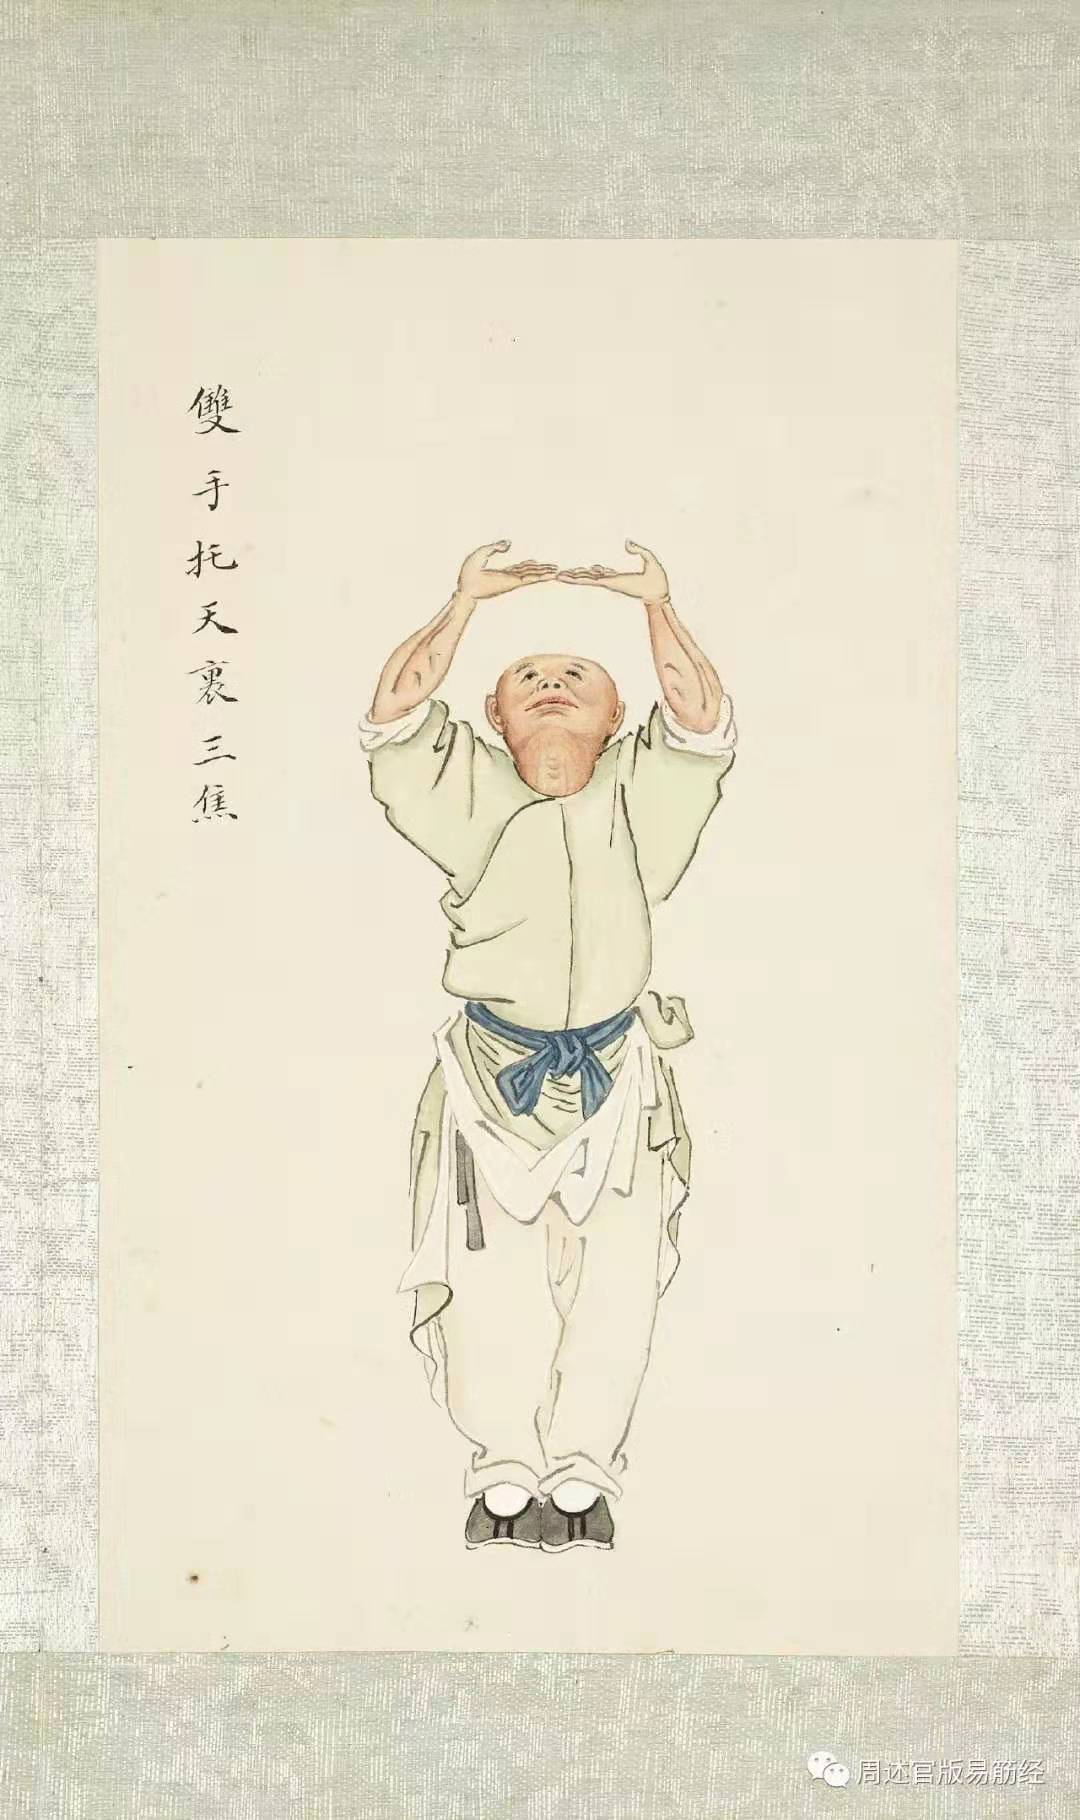 雙手托天裏三焦
周述官版易筋经